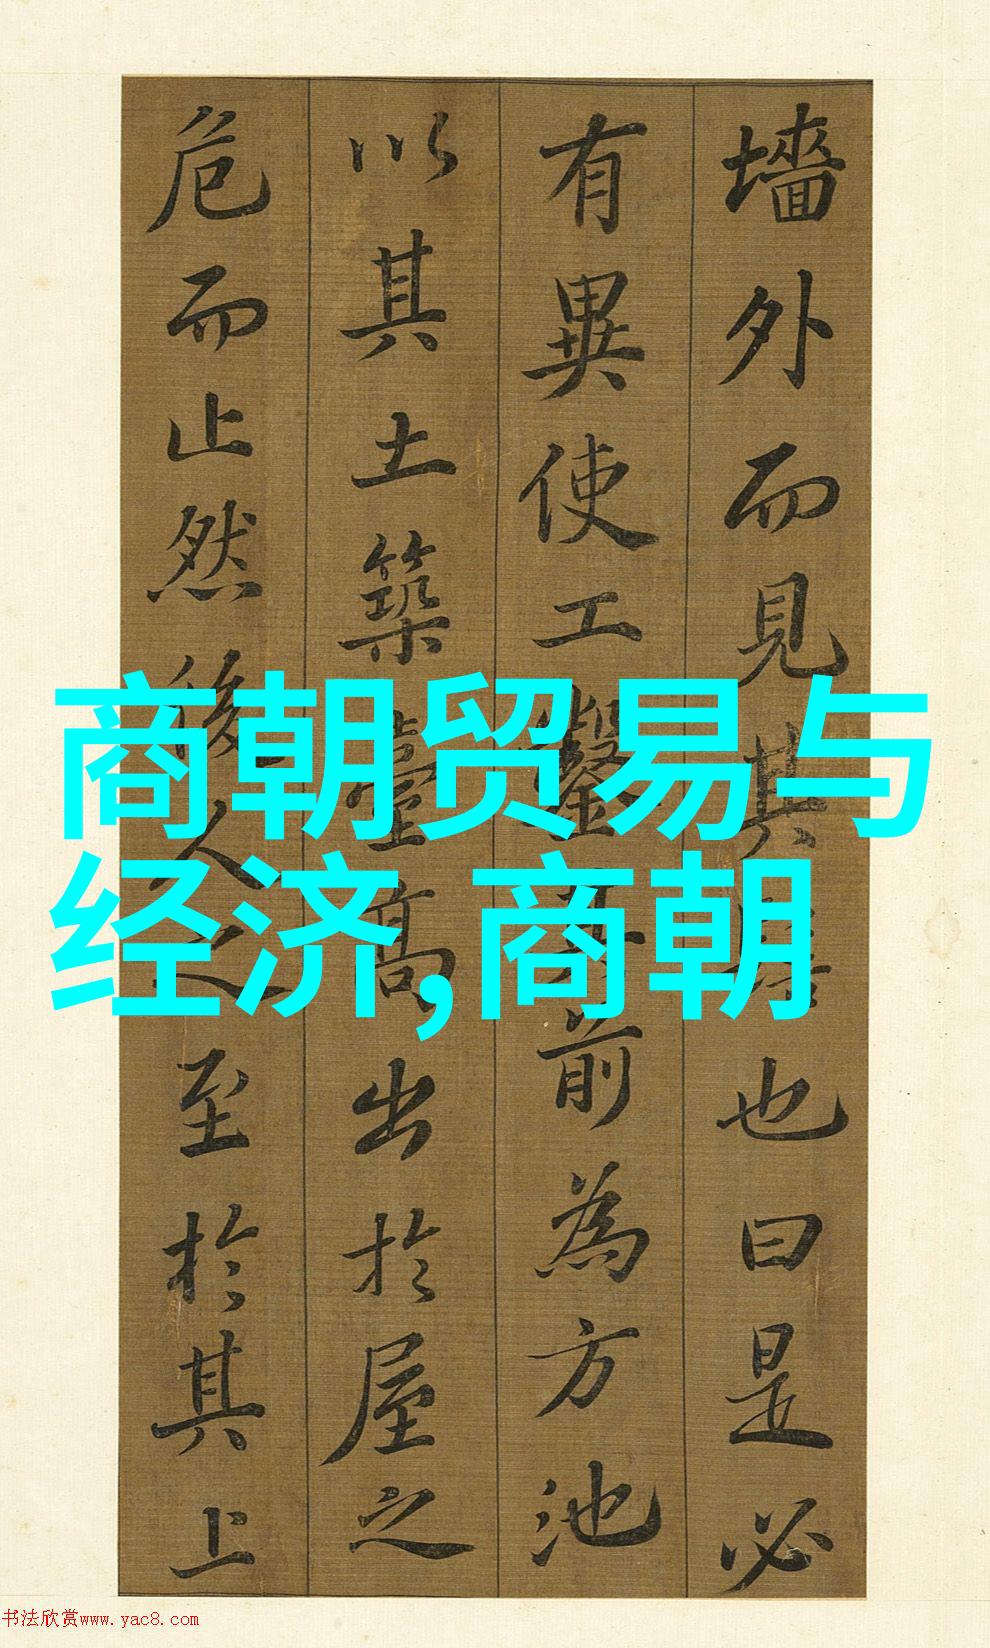 墻外而見其髻也曰是必
有異使工鑿其前為方池
以其土築臺高出於屋之
危而止然後人之至於其上
商朝贸易与
经济,商朝
书法欣赏www.yac8.com